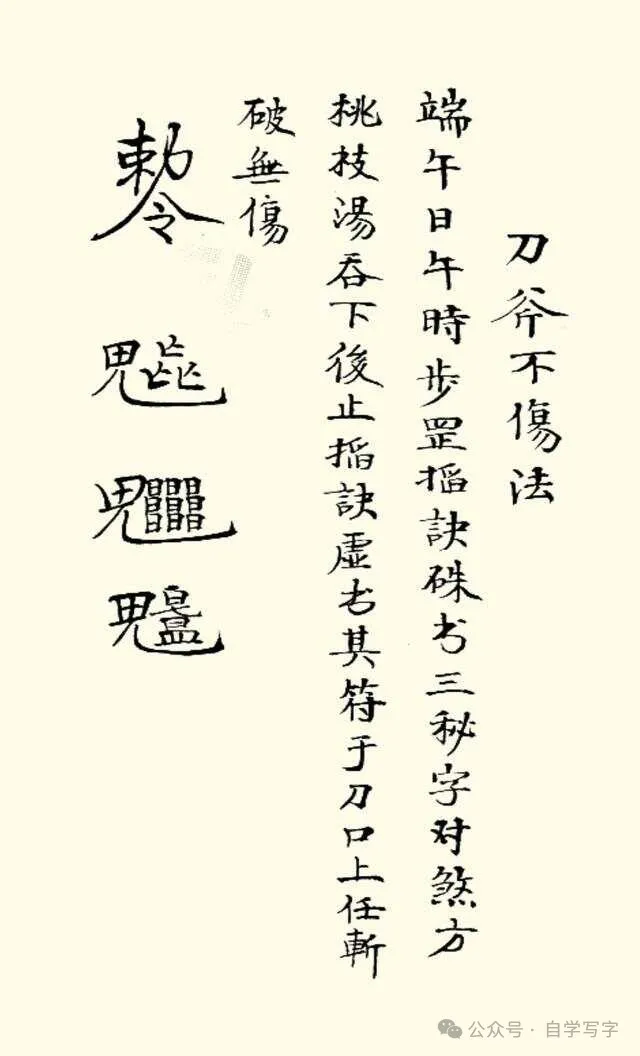 刀斧不傷法
端午日午時步罡掐訣硃书三秘字对煞方
桃枝湯吞下後止掐訣虚书其符于刀口上任斬
破無傷
敕令
公众号 · 自学写字